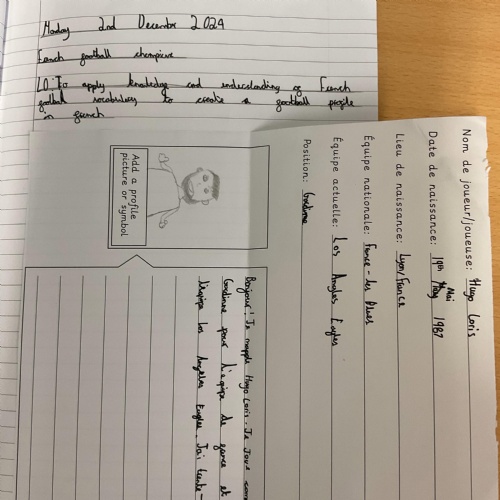 Monday 2nd December 2024
French football champions
LO: To apply knowledge and understanding of French
football vocabulary to create a football profile
in french
Nom de joueur/joueuse: Hugo Loris
Date de naissance: 19th May Mai 1987
Lieu de naissance: Lyon/France
Équipe nationale: France - les Blues
Équipe actuelle: Los Angles Eagles
Position: Gardinne
Add a profile
picture or symbol
Bonjour! Je mapple Hugo Loris. Je Joue
Gardinne pour l'equipe de et
l'equipe Los Angeles J'ai trente-